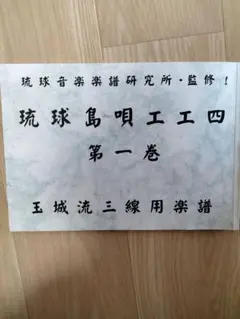 琉球音楽楽譜研究所・監修！
琉球島唄工工四
第一巻
玉城流三線用楽譜